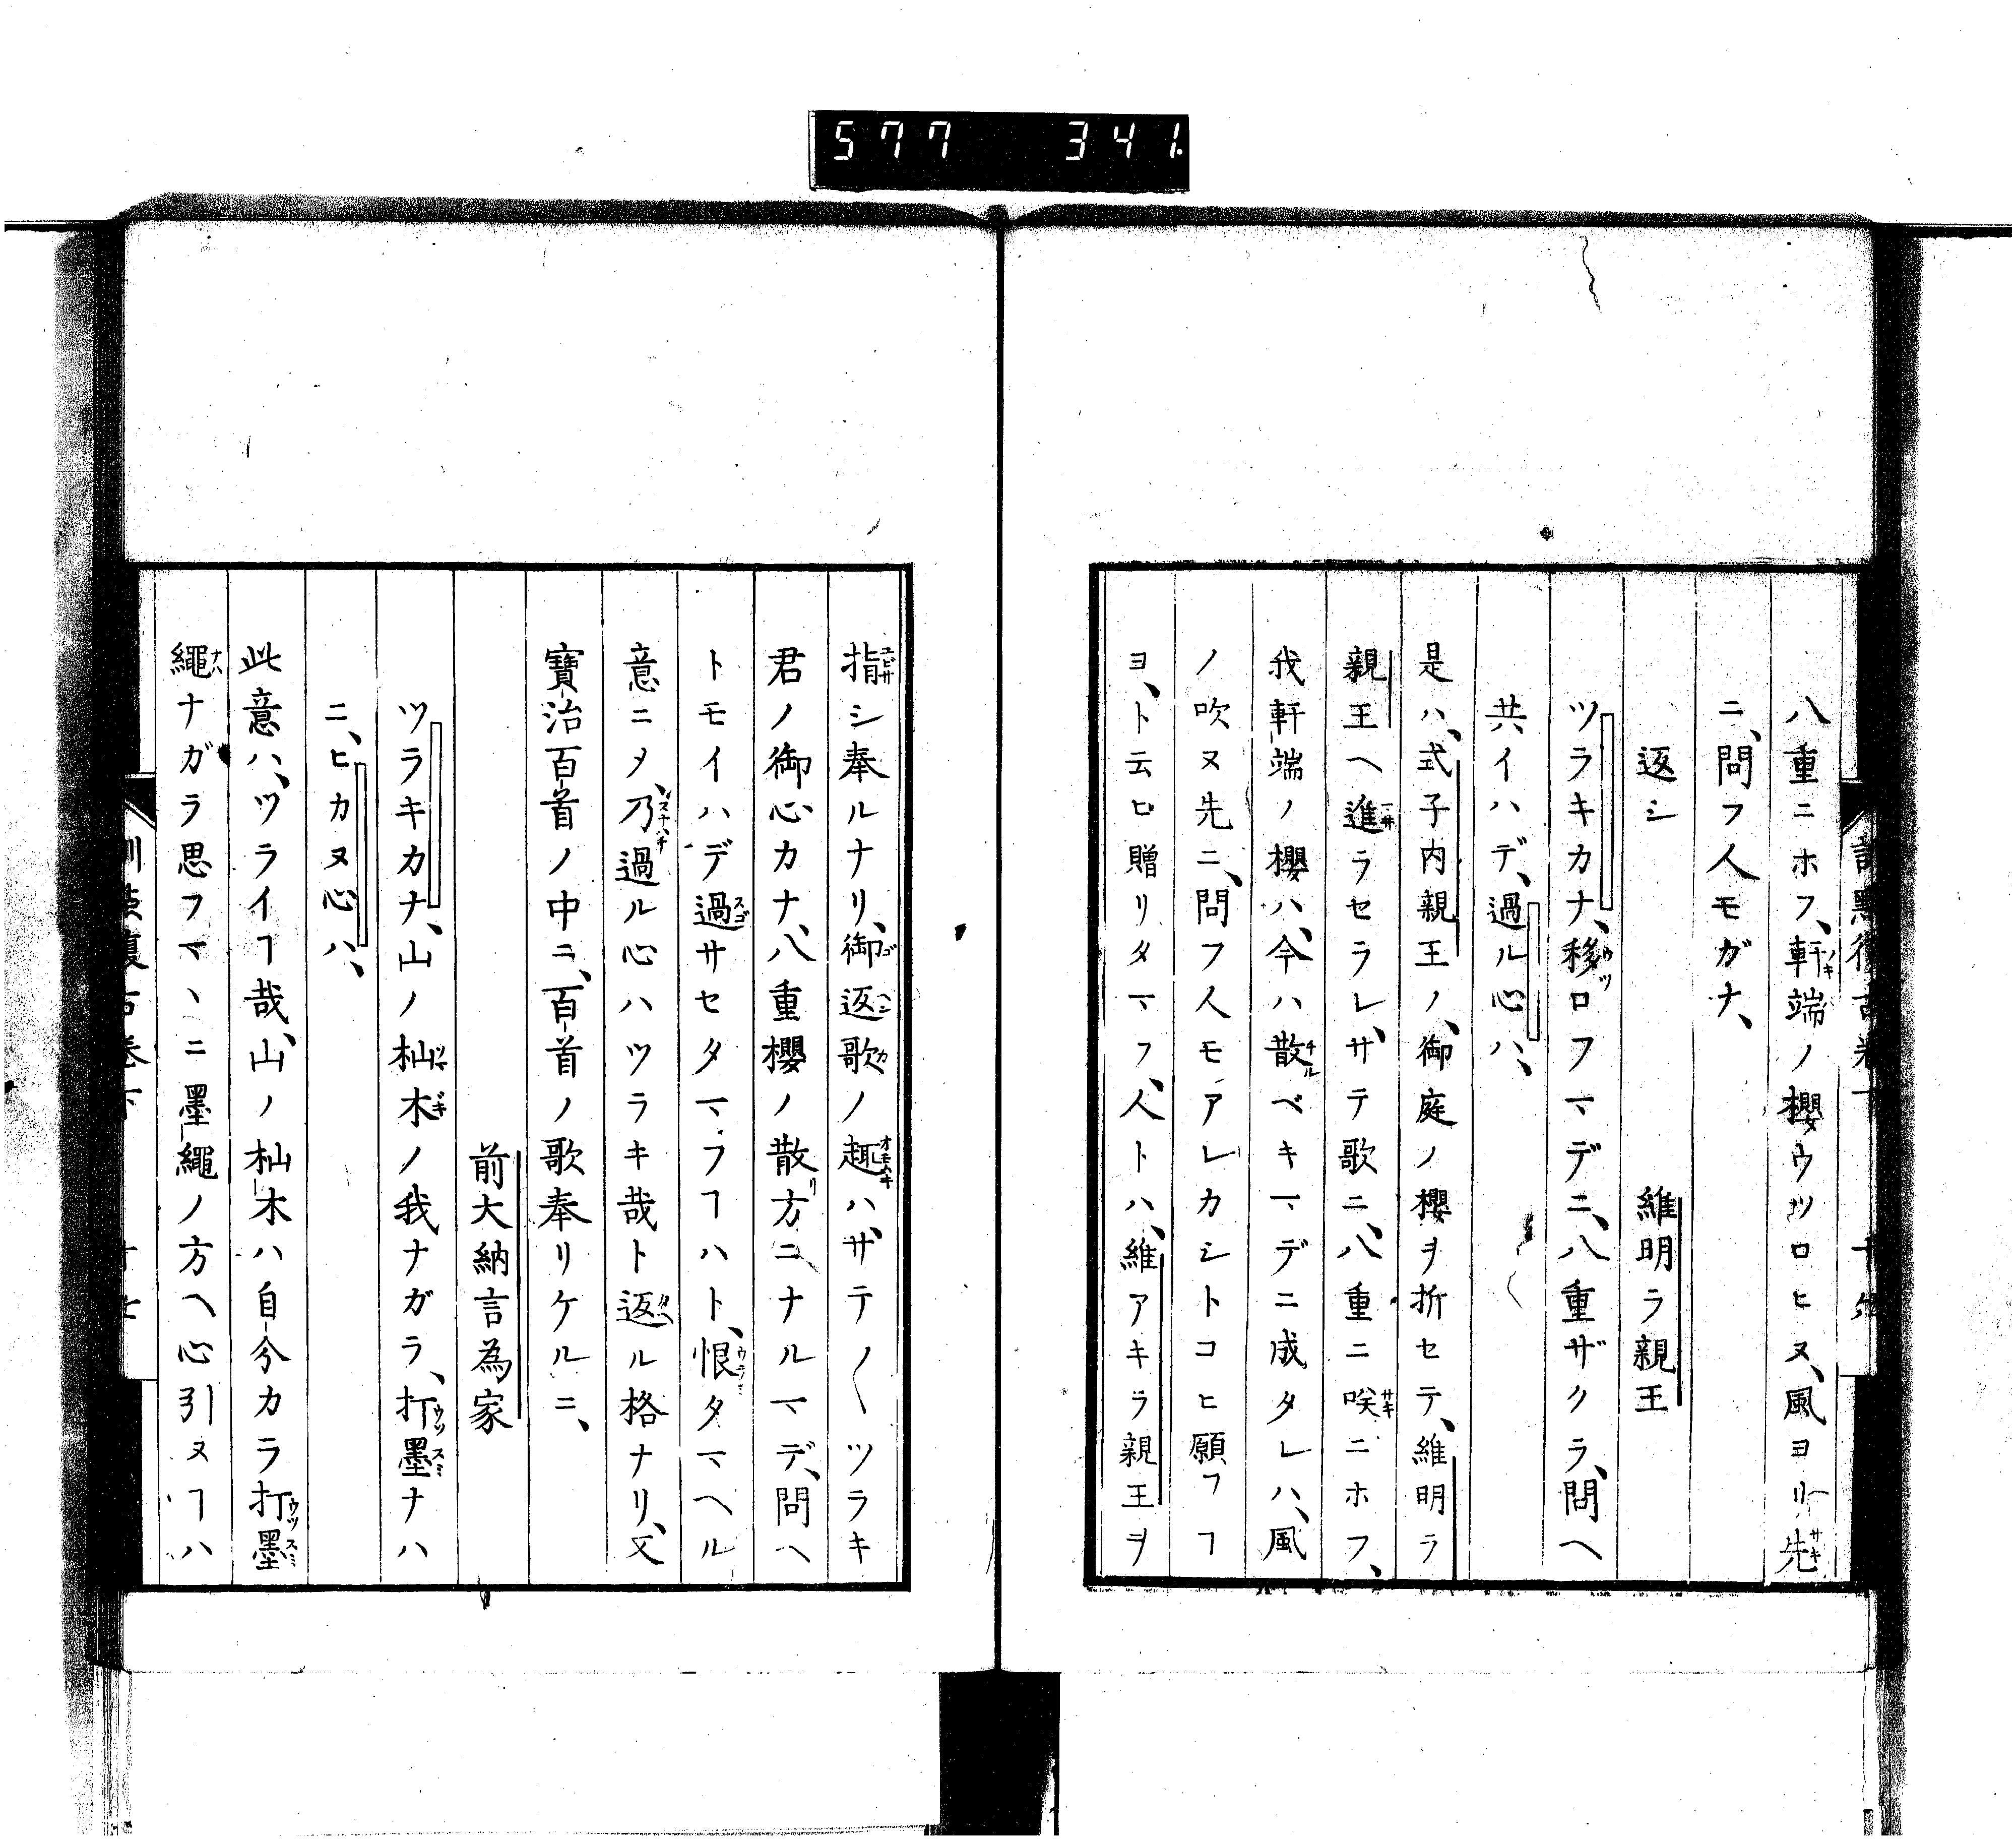 577 341.
八重ニホフ、軒端ノ櫻ウツロヒヌ、風ヨリ先
ニ、問フ人モガナ、
返シ 維明ラ親王
ツラキカナ、移ロフマデニ、八重ザクラ、問ヘ
共イハデ、過ル心ハ、
是ハ、式子内親王ノ、御庭ノ櫻ヲ折セテ、維明ラ
親王ヘ進ラセラレ、サテ歌ニ、八重ニ咲ニホフ、
我軒端ノ櫻ハ、今ハ散ベキマデニ成タレハ、風
ノ吹ヌ先ニ、問フ人モアレカシトコヒ願フヿ
ヨ、ト云ヒ贈リタマフ、人トハ、維アキラ親王ヲ
指シ奉ルナリ、御返歌ノ趣ハ、サテ〱ツラキ
君ノ御心カナ、八重櫻ノ散方ニナルマデ、問ヘ
トモイハデ過サセタマフヿハト、恨タマヘル
意ニメ、乃過ル心ハツラキ哉ト返ル格ナリ、又
寶治百首ノ中ニ、百首ノ歌奉リケルニ、
前大納言為家
ツラキカナ、山ノ杣木ノ我ナガラ、打墨ナハ
ニ、ヒカヌ心ハ、
此意ハ、ツライヿ哉、山ノ杣木ハ自今カラ打墨
繩ナガラ思フマヽニ墨繩ノ方ヘ心引ヌヿハ